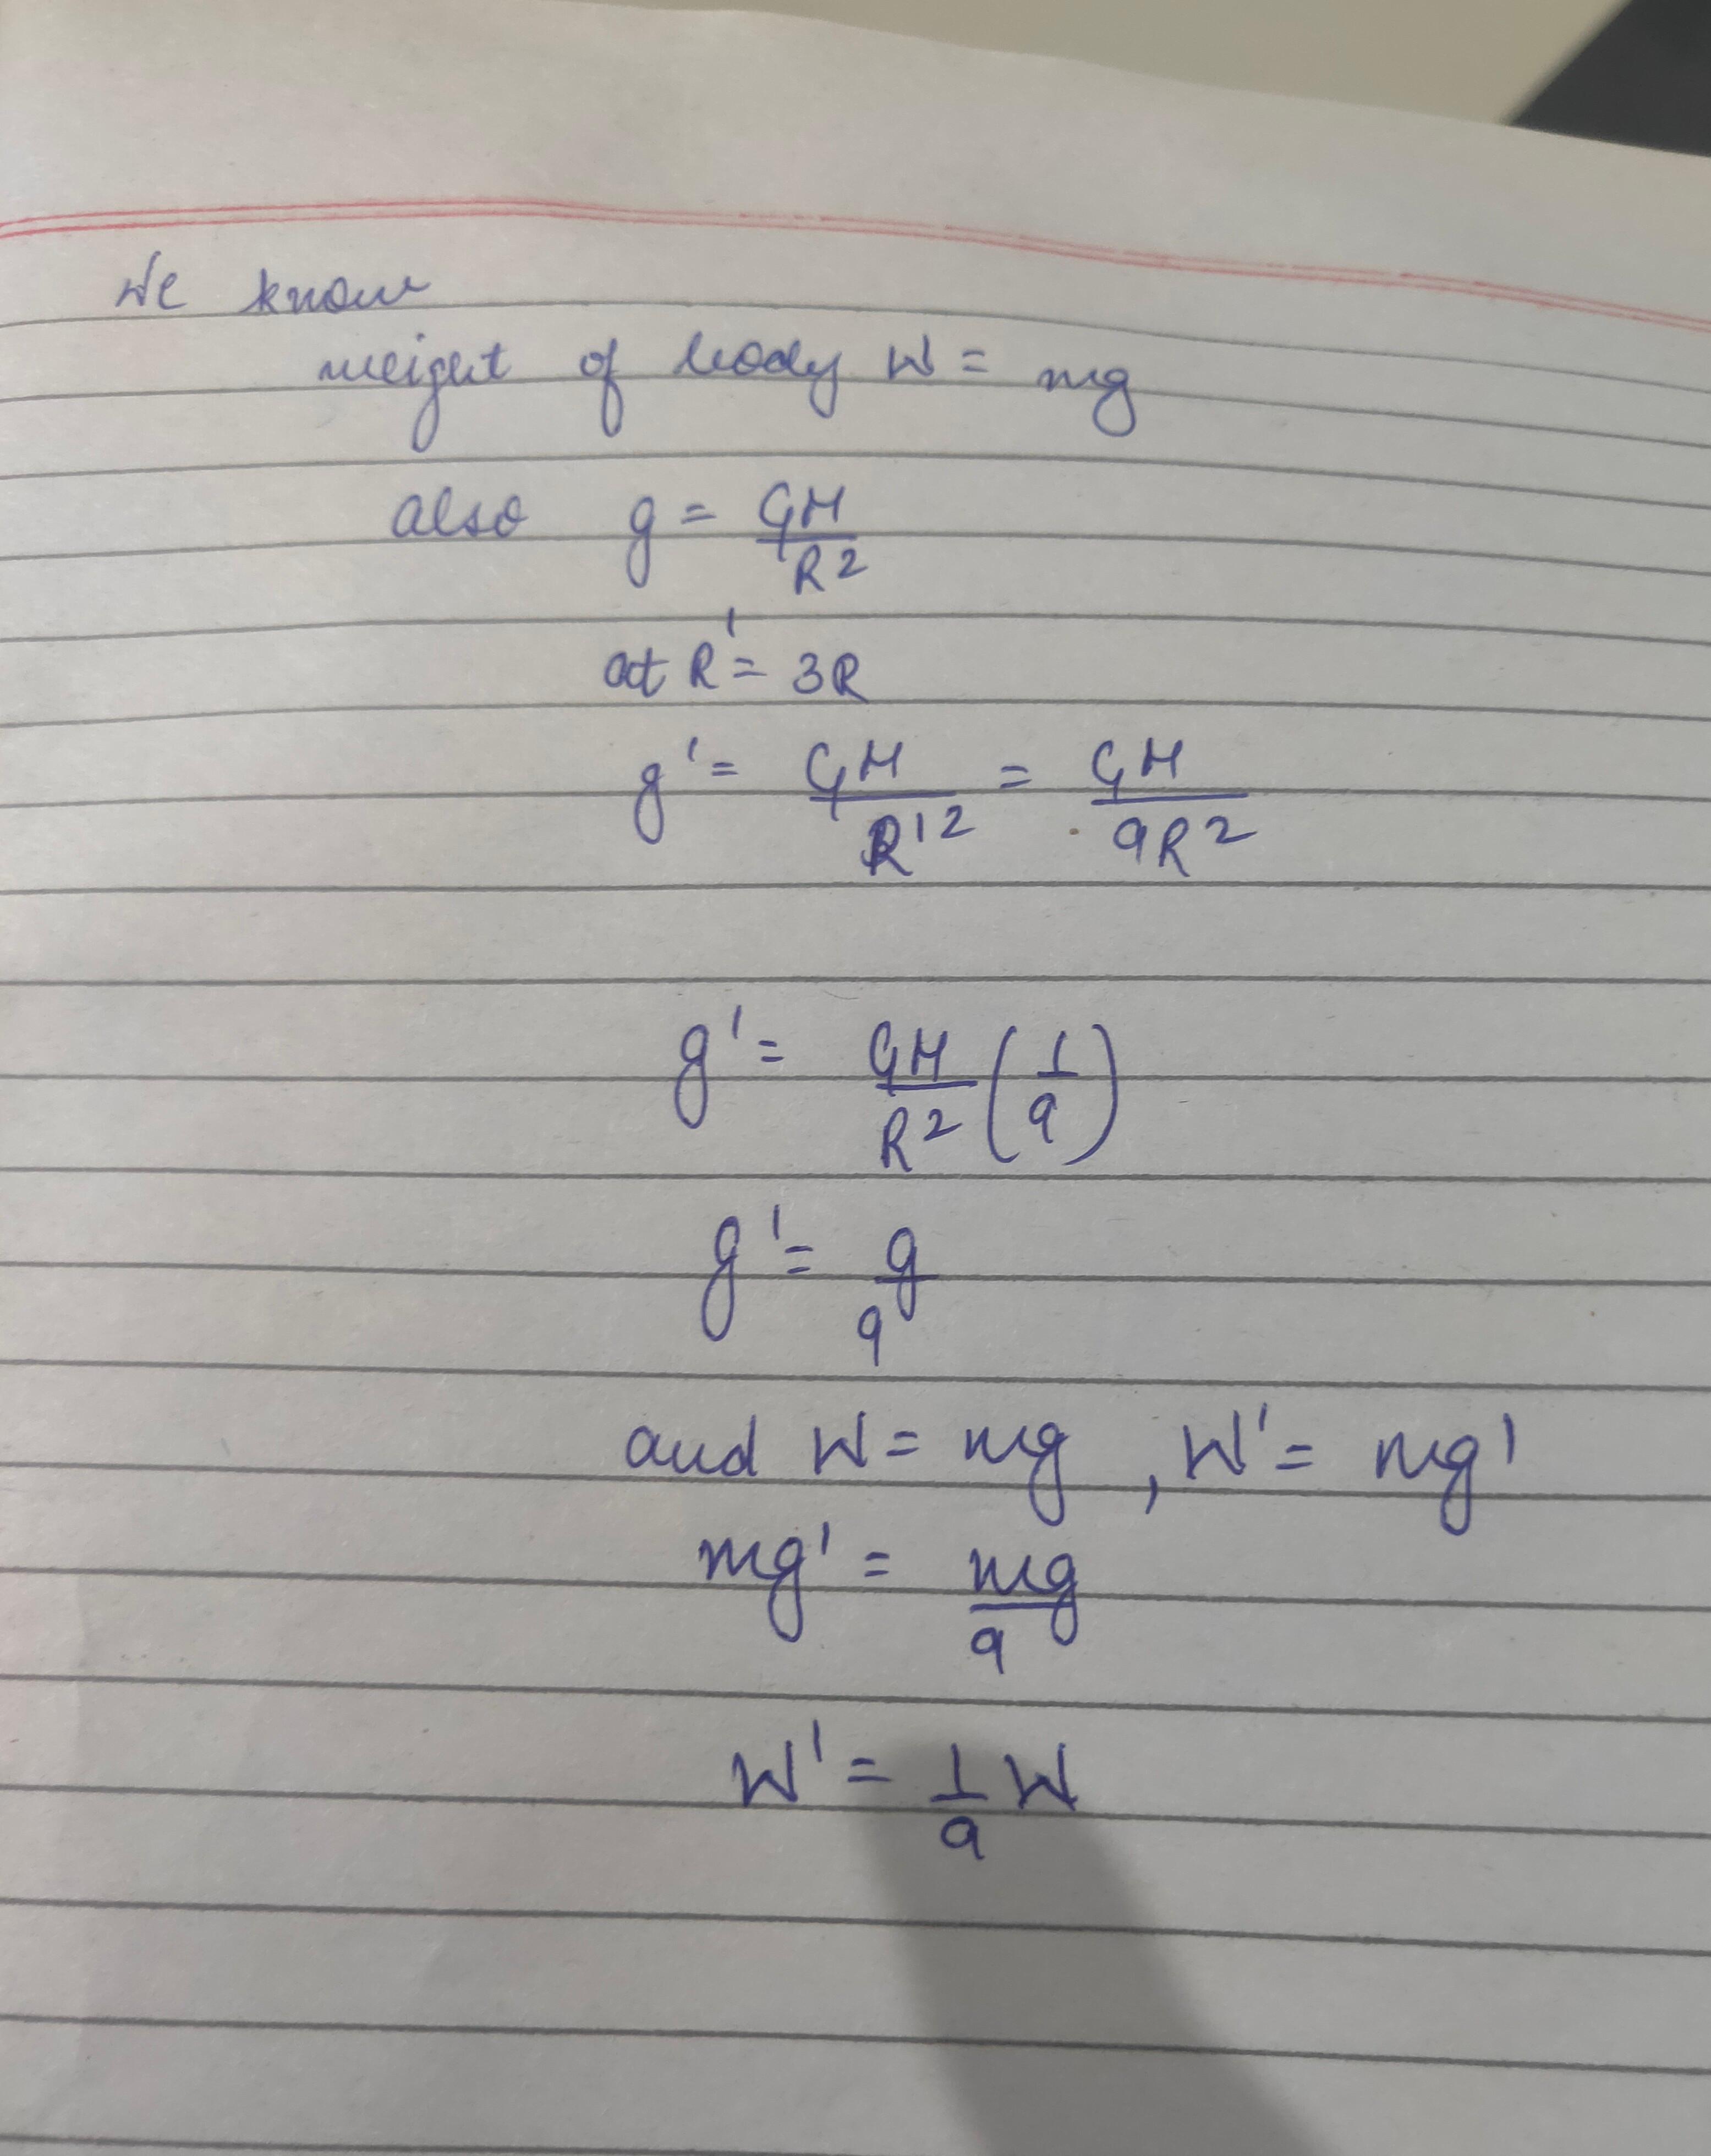 We know
weight of body W = mg
also g = GM/R²
at R' = 3R
g' = GM/R'² = GM/9R²
g' = GM/R² (1/9)
g' = g/9
and W = mg , W' = mg'
mg' = mg/9
W' = 1/9 W